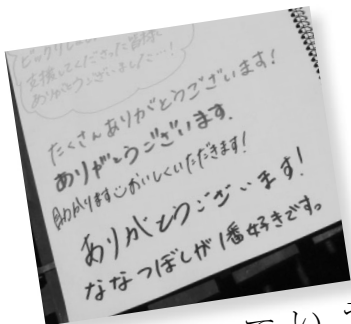 支援してくださった皆様に
ありがとうございました…!
たくさんありがとうございます!
ありがとうございます.
助かります おいしくいただきます!
ありがとうございます!
ななつぼしが1番好きです。